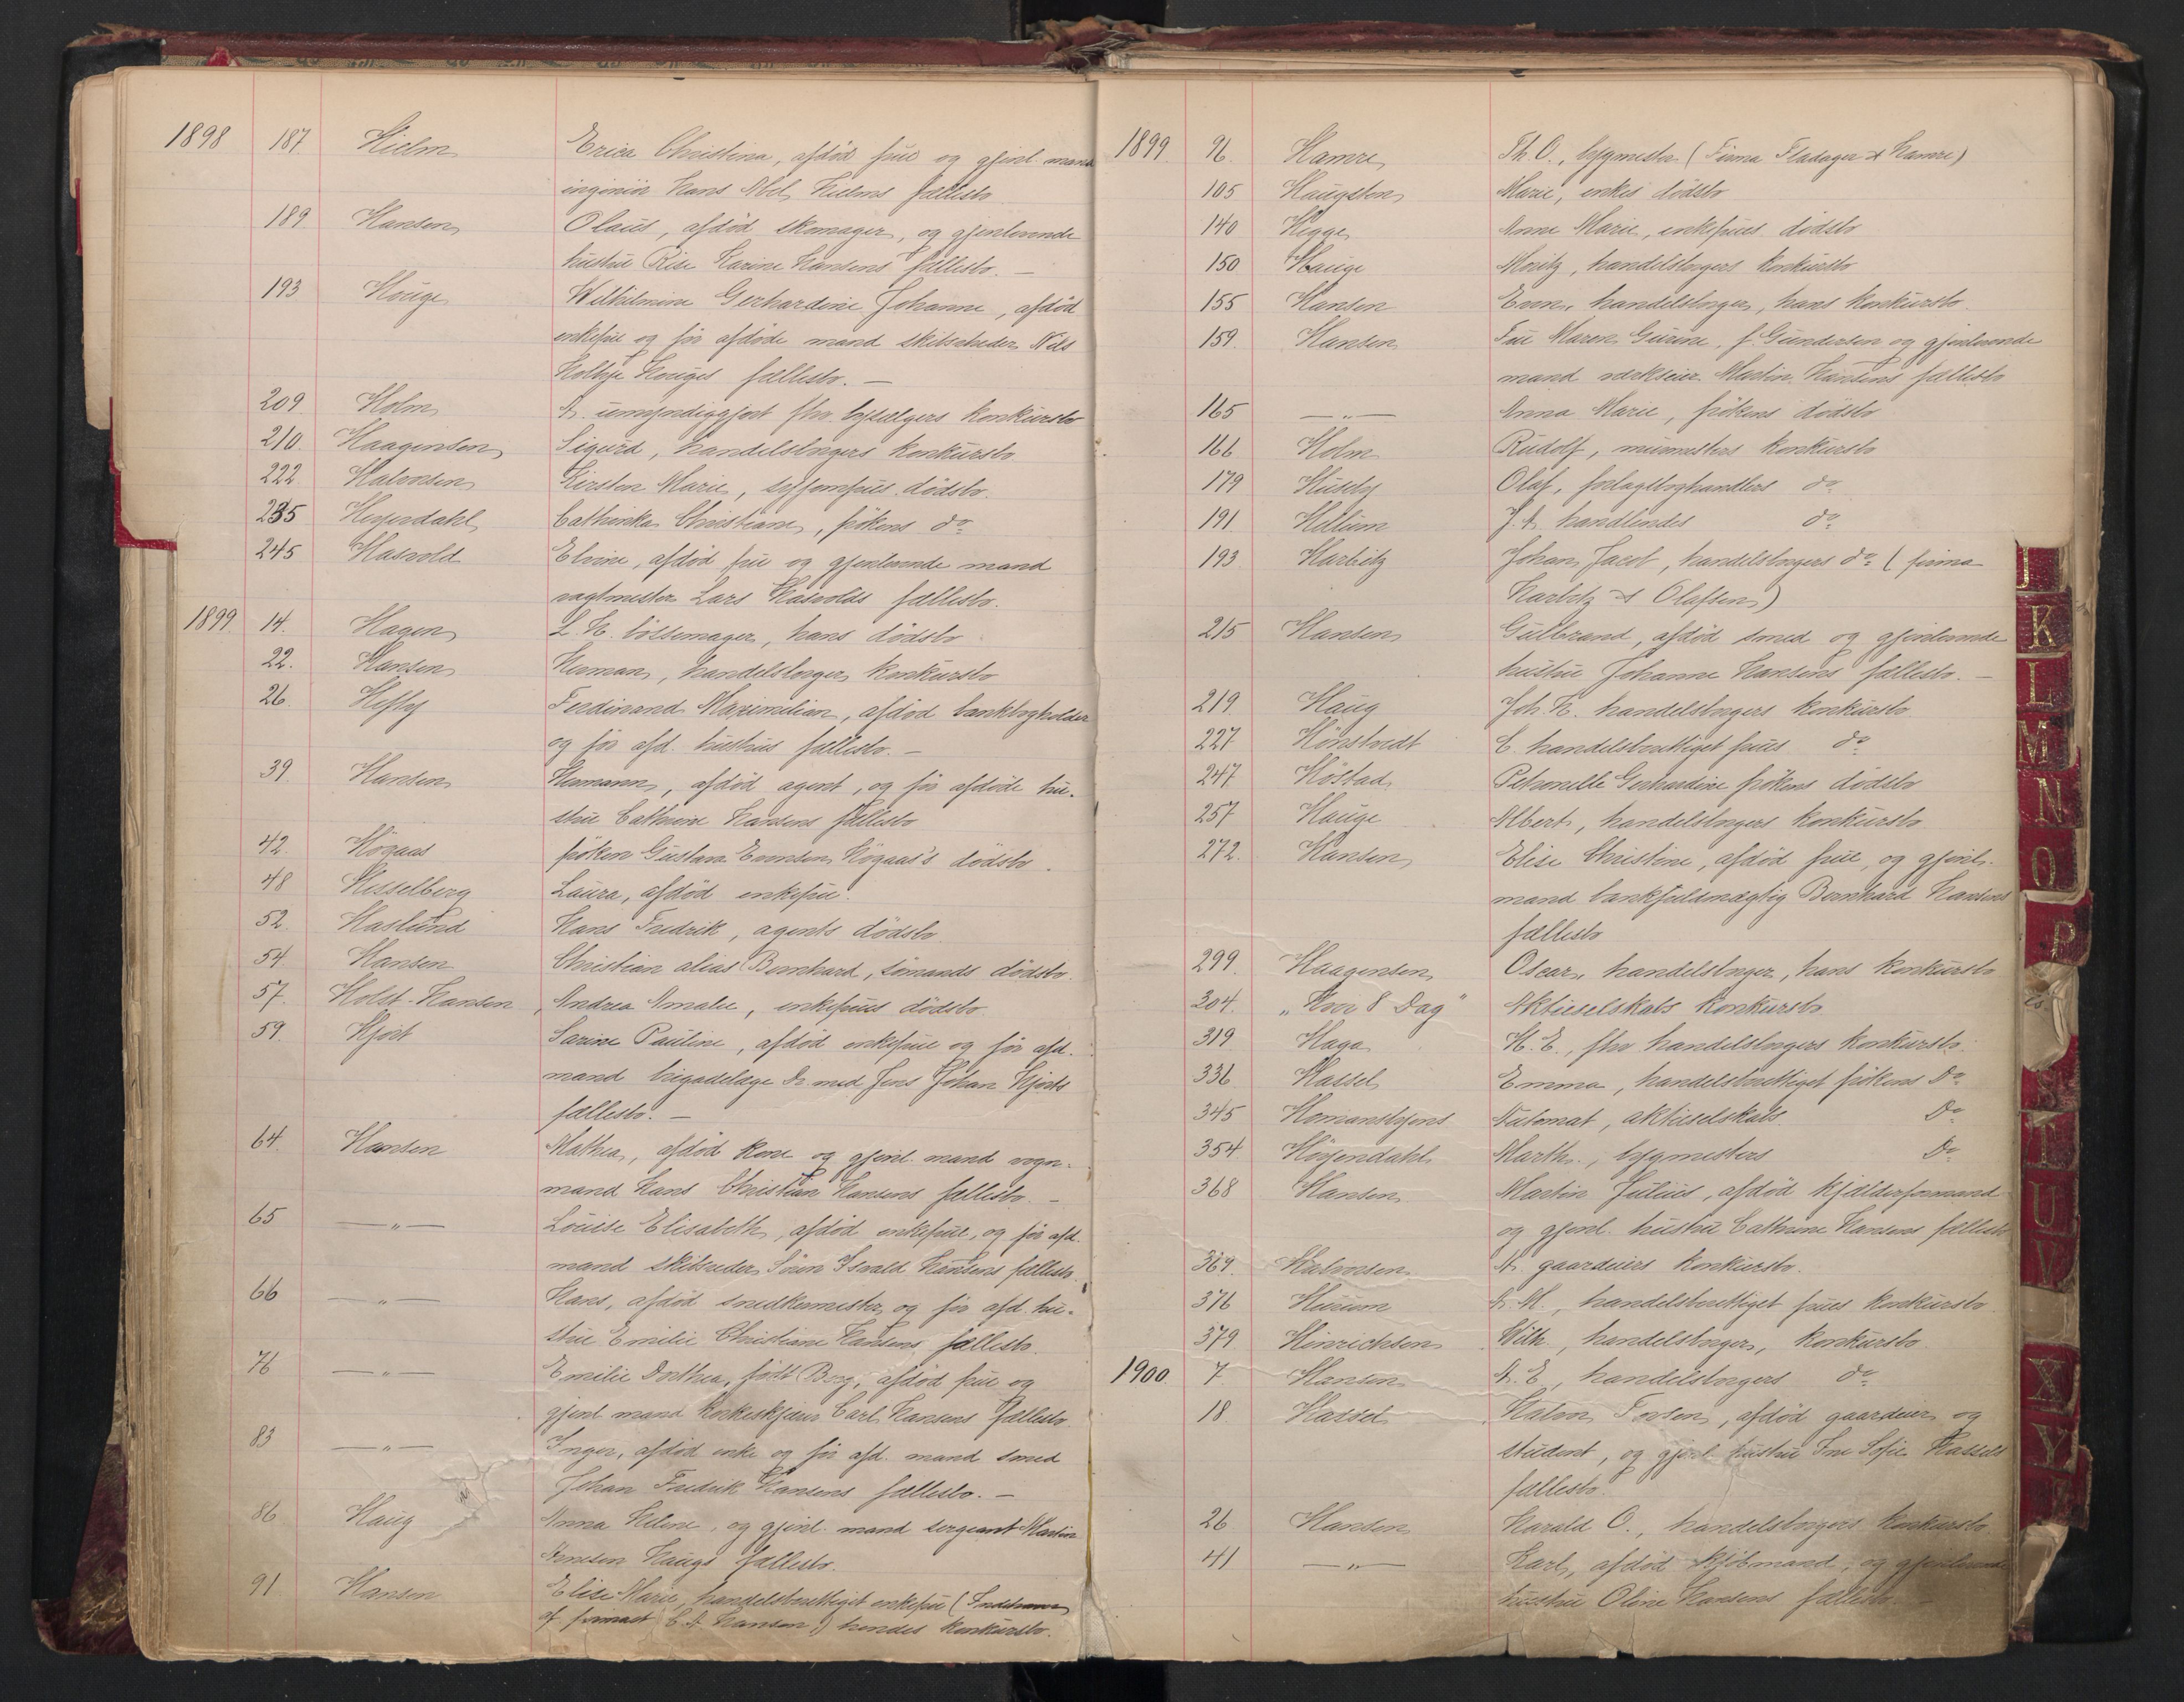 1898 187. Hielm Erica Christina, afdöd frue og gjenl. mand
ingeniör Hans Abel Hielms fællesbo
189 Hansen Olaus, afdöd skomager, og gjenlevende
hustru Rise Karine Hansens fællesbo. —
193 Houge Wilhelmine Gerhardine Johanne, afdöd
enkefrue og för afdöde mand skibsrheder Nils
Holbye Houges fællesbo. —
209 Holm A. umyndiggjort fhv. bysælgers konkursbo
210. Haagensen Sigurd, handelsborgers konkursbo
222 Halvorsen Kirsten Marie, dödsbo.
235 Heyerdahl Cathinka Christiane, frökens do
245 Hasvold Elvine, afdöd frue og gjenlevende mand
vagtmester Lars Hasvolds fællesbo.
1899 14. Hagen L. H. bössemager, hans dödsbo
22. Hansen Herman, handelsborger, konkursbo
26. Heftye Ferdinand Maximilian, afdöd bankbogholder
og för afd. hustrus fællesbo. —
39. Hansen Hermann, afdöd agent, og för afdöde hu-
stru Cathrine Hansens fællesbo
42. Högaas fröken Gustava Evensen Högaas's dödsbo.
48 Hesselberg Laura, afdöd enkefrue.
52. Haslund Hans Fredrik, agents dödsbo
54 Hansen Christian alias Bernhard, sömands dödsbo.
57. Holst-Hansen, Andrea Amalie, enkefrues dödsbo
59. Hjort Sarine Pauline, afdöd enkefrue og för afd.
mand brigadelæge Dr med Jens Johan Hjorts
fællesbo. —
64. Hansen Mathea, afdöd kone og gjenl. mand vogn-
mand Hans Christian Hansens fællesbo. —
65 — " — Louise Elisabeth, afdöd enkefrue, og för afd.
mand skibsreder Sören Isvald Hansens fællesbo.
66 — " — Hans, afdöd snedkermester og för afd. hu-
stru Emilie Christiane Hansens fællesbo.
76 — " — Emilie Dorthea, födt Berg, afdöd frue og
gjenl. mand korkeskjærer Carl Hansens fællesbo.
83 — " — Inger, afdöd enke og för afd. mand smed
Johan Fredrik Hansens fællesbo. —
86 Haug Anna Helene, og gjenl. mand sergeant Martin
Arnesen Haugs fællesbo.
91 Hansen Elise Marie, handelsberettiget enkefrue (Indehaver
af firmaet C. A. Hansen,) hendes konkursbo.
1899. 96. Hamre Th. O., bygmester (Firma Fladager & Hamre)
105 Haugsten Marie, enkes dödsbo
140 Higge Anne Marie, enkefrues dödsbo
150 Hauge Moritz, handelsborgers konkursbo
155 Hansen Even, handelsborger, hans konkursbo.
159. Hansen Frue Maren Gurine, f. Gundersen og gjenlevende
mand værkseier Martin Hansens fællesbo
165 — " — Anna Marie, frökens dödsbo
166 Holm Rudolf, murmesters konkursbo
179 Huseby Olaf, forlagsboghandlers do
191 Hellum J. A. handlendes do
193 Harbitz Johan Jacob, handelsborgers do (firma
Harbitz & Olafsen)
215 Hansen Gulbrand, afdöd smed og gjenlevende
hustru Johanne Hansens fællesbo. —
219. Haug Joh. H. handelsborgers konkursbo
227 Hönstvedt C. handelsberettiget frues do
247. Höstad Petronelle Gerhardine frökens dödsbo
257 Hauge Albert, handelsborgers konkursbo
272. Hansen Elise Christine, afdöd frue, og gjenl.
mand bankfuldmægtig Bernhard Hansens
fællesbo
299. Haagensen Oscar, handelsborger, hans konkursbo
304. "Hver 8 Dag" Aktieselskabs konkursbo
319 Haga H. E., fhv handelsborgers konkursbo.
336 Hassel Emma, handelsberettiget frökens Do
345 Homansbyens Automat, aktieselskabs Do
354 Höyendahl Marth., bygmesters Do
368 Hansen Martin Julius, afdöd kjælderformand
og gjenl. hustru Cathrine Hansens fællesbo
369. Halvorsen A. gaardeiers konkursbo.
376 Hurum A. M., handelsberettiget frues konkursbo.
379 Hinrichsen Wilh., handelsborger, konkursbo
1900 7 Hansen A. E., handelsborgers do
18 Hassel Halvor Iversen, afdöd gaardeier og
student, og gjenl. hustru Ine Sofie Hassels
fællesbo.
26 Hansen Harald O., handelsborgers konkursbo.
41 — " — Karl, afdöd kjöbmand, og gjenlevende
hustru Oline Hansens fællesbo —
J
K
L
M
N
O
P
S
T
U
X
Y